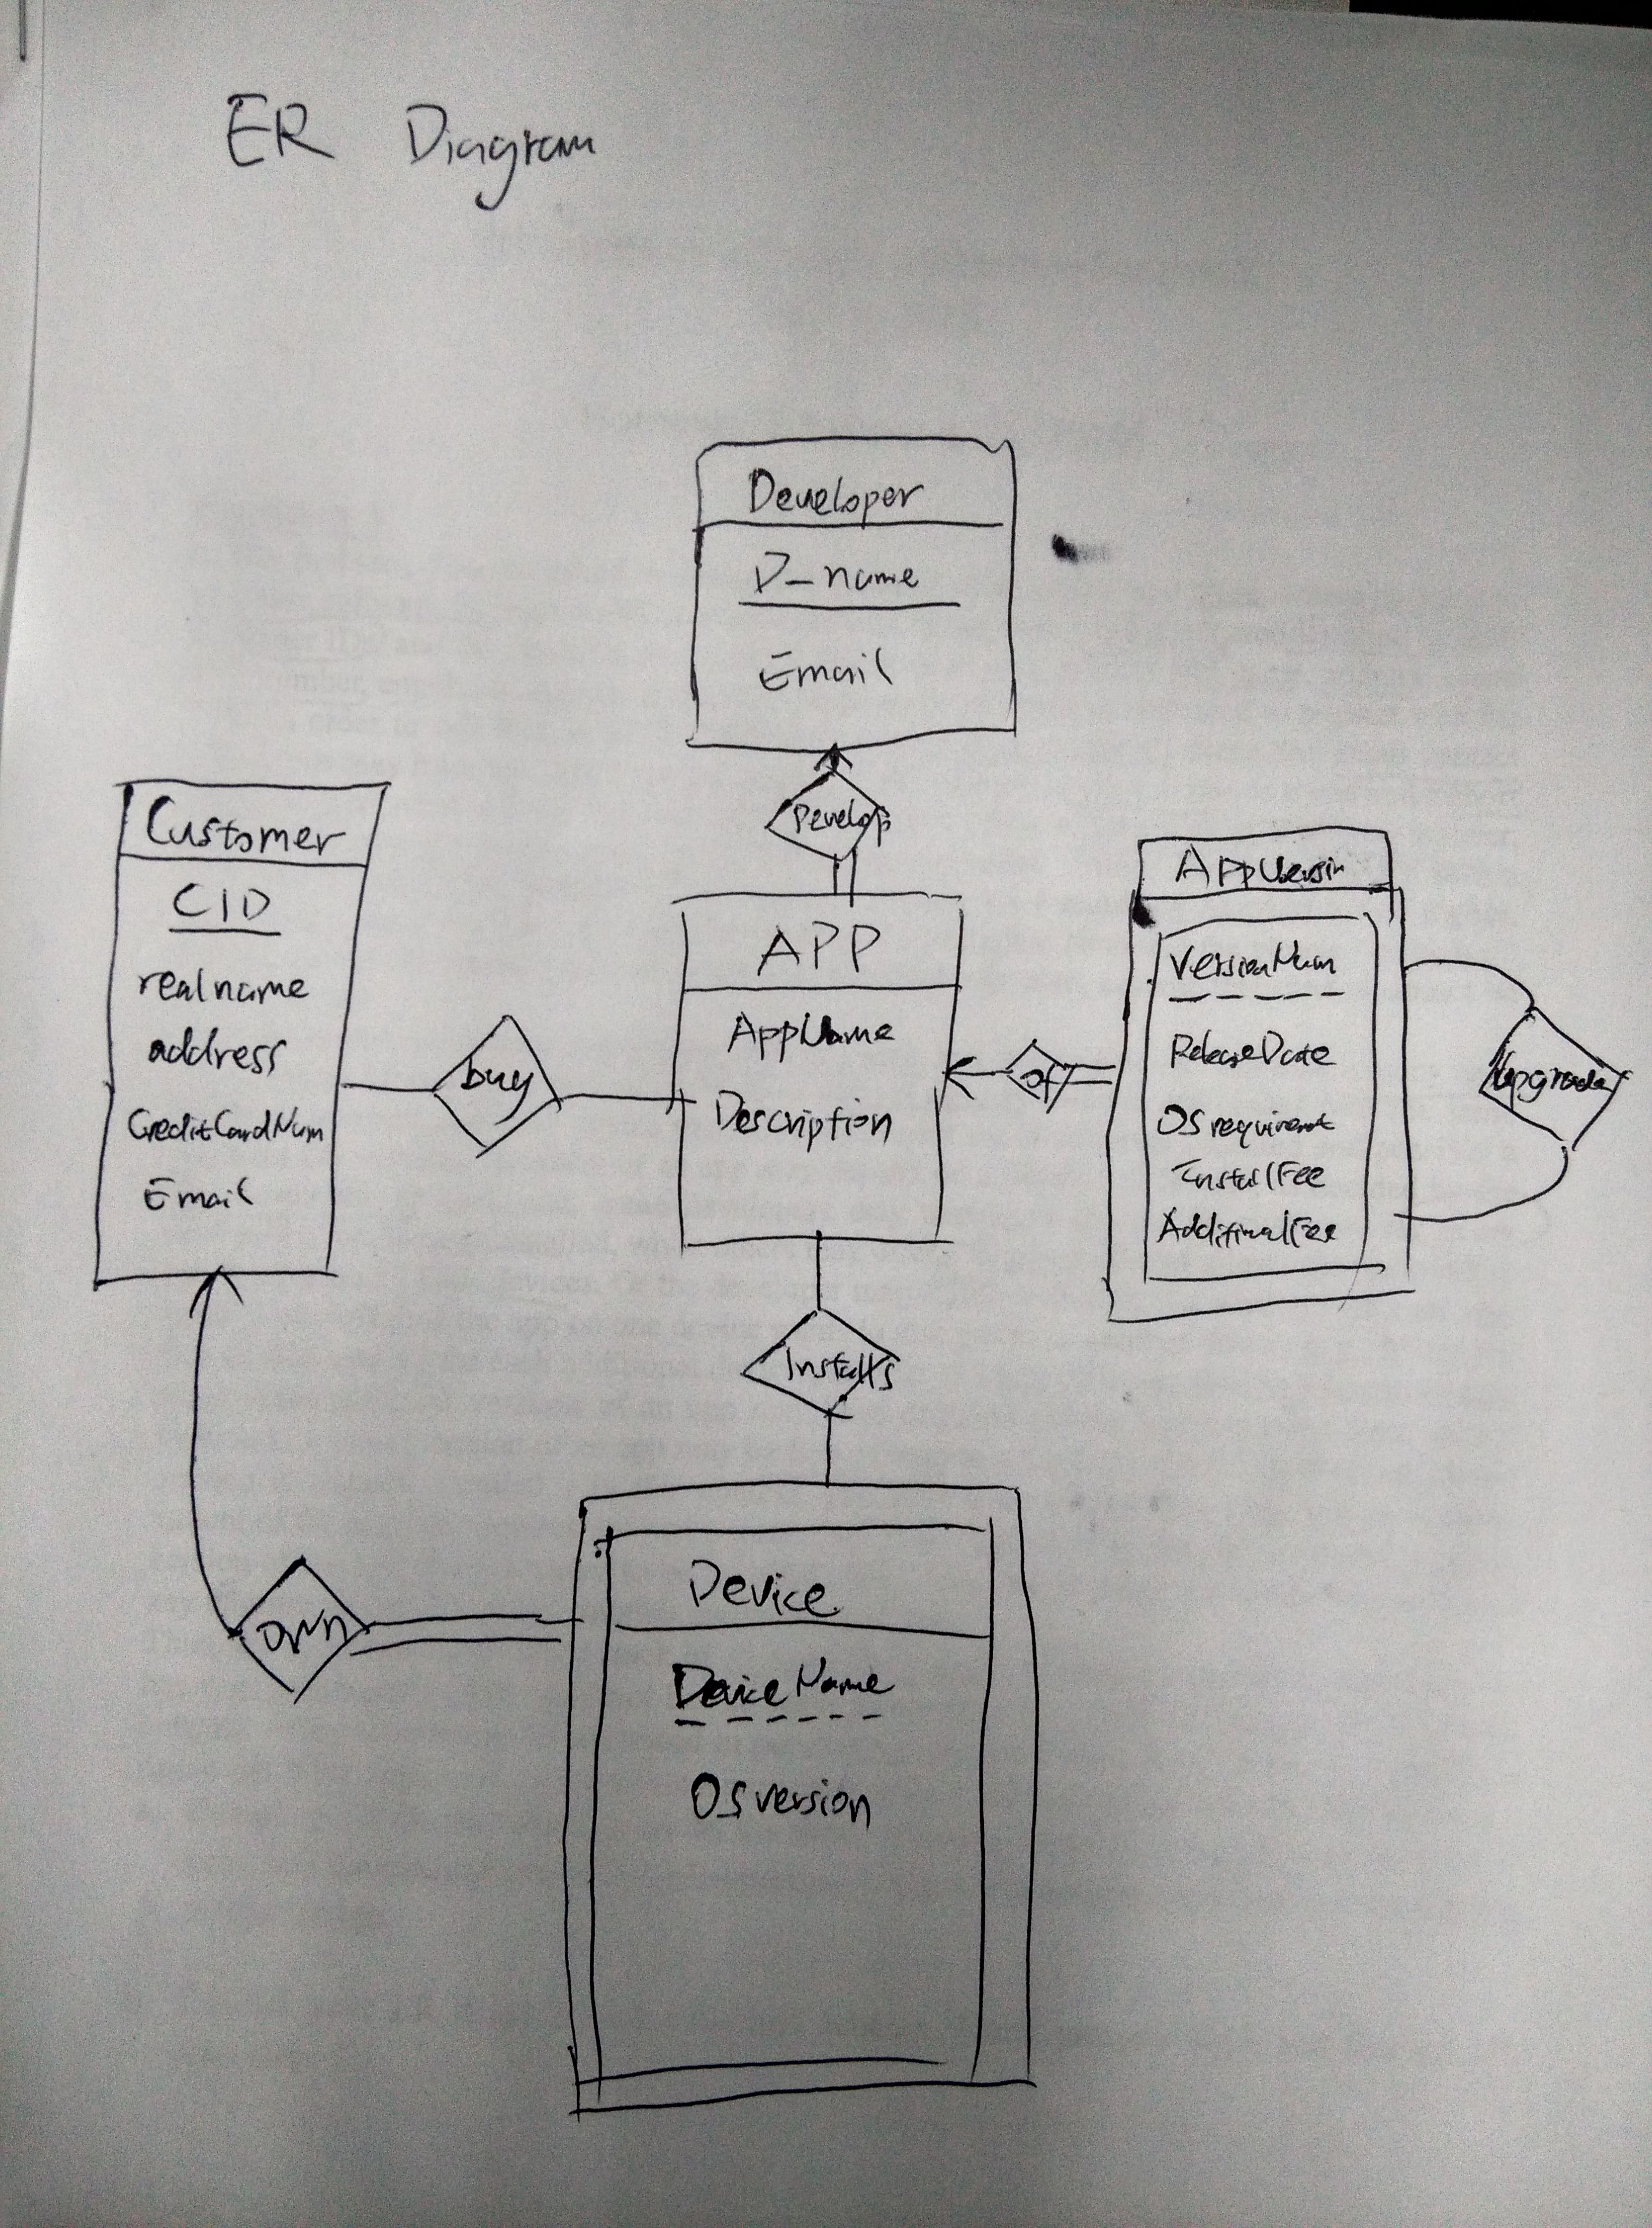 ER Diagram
Developer
D_name
Email
Develop
Customer
CID
realname
address
CreditCardNum
Email
buy
APP
AppName
Description
of
AppVersin
VersionNum
ReleaseDate
OS requiremt
InstallFee
AdditinalFee
Upgrade
Installs
own
Device
DeviceName
OSversion